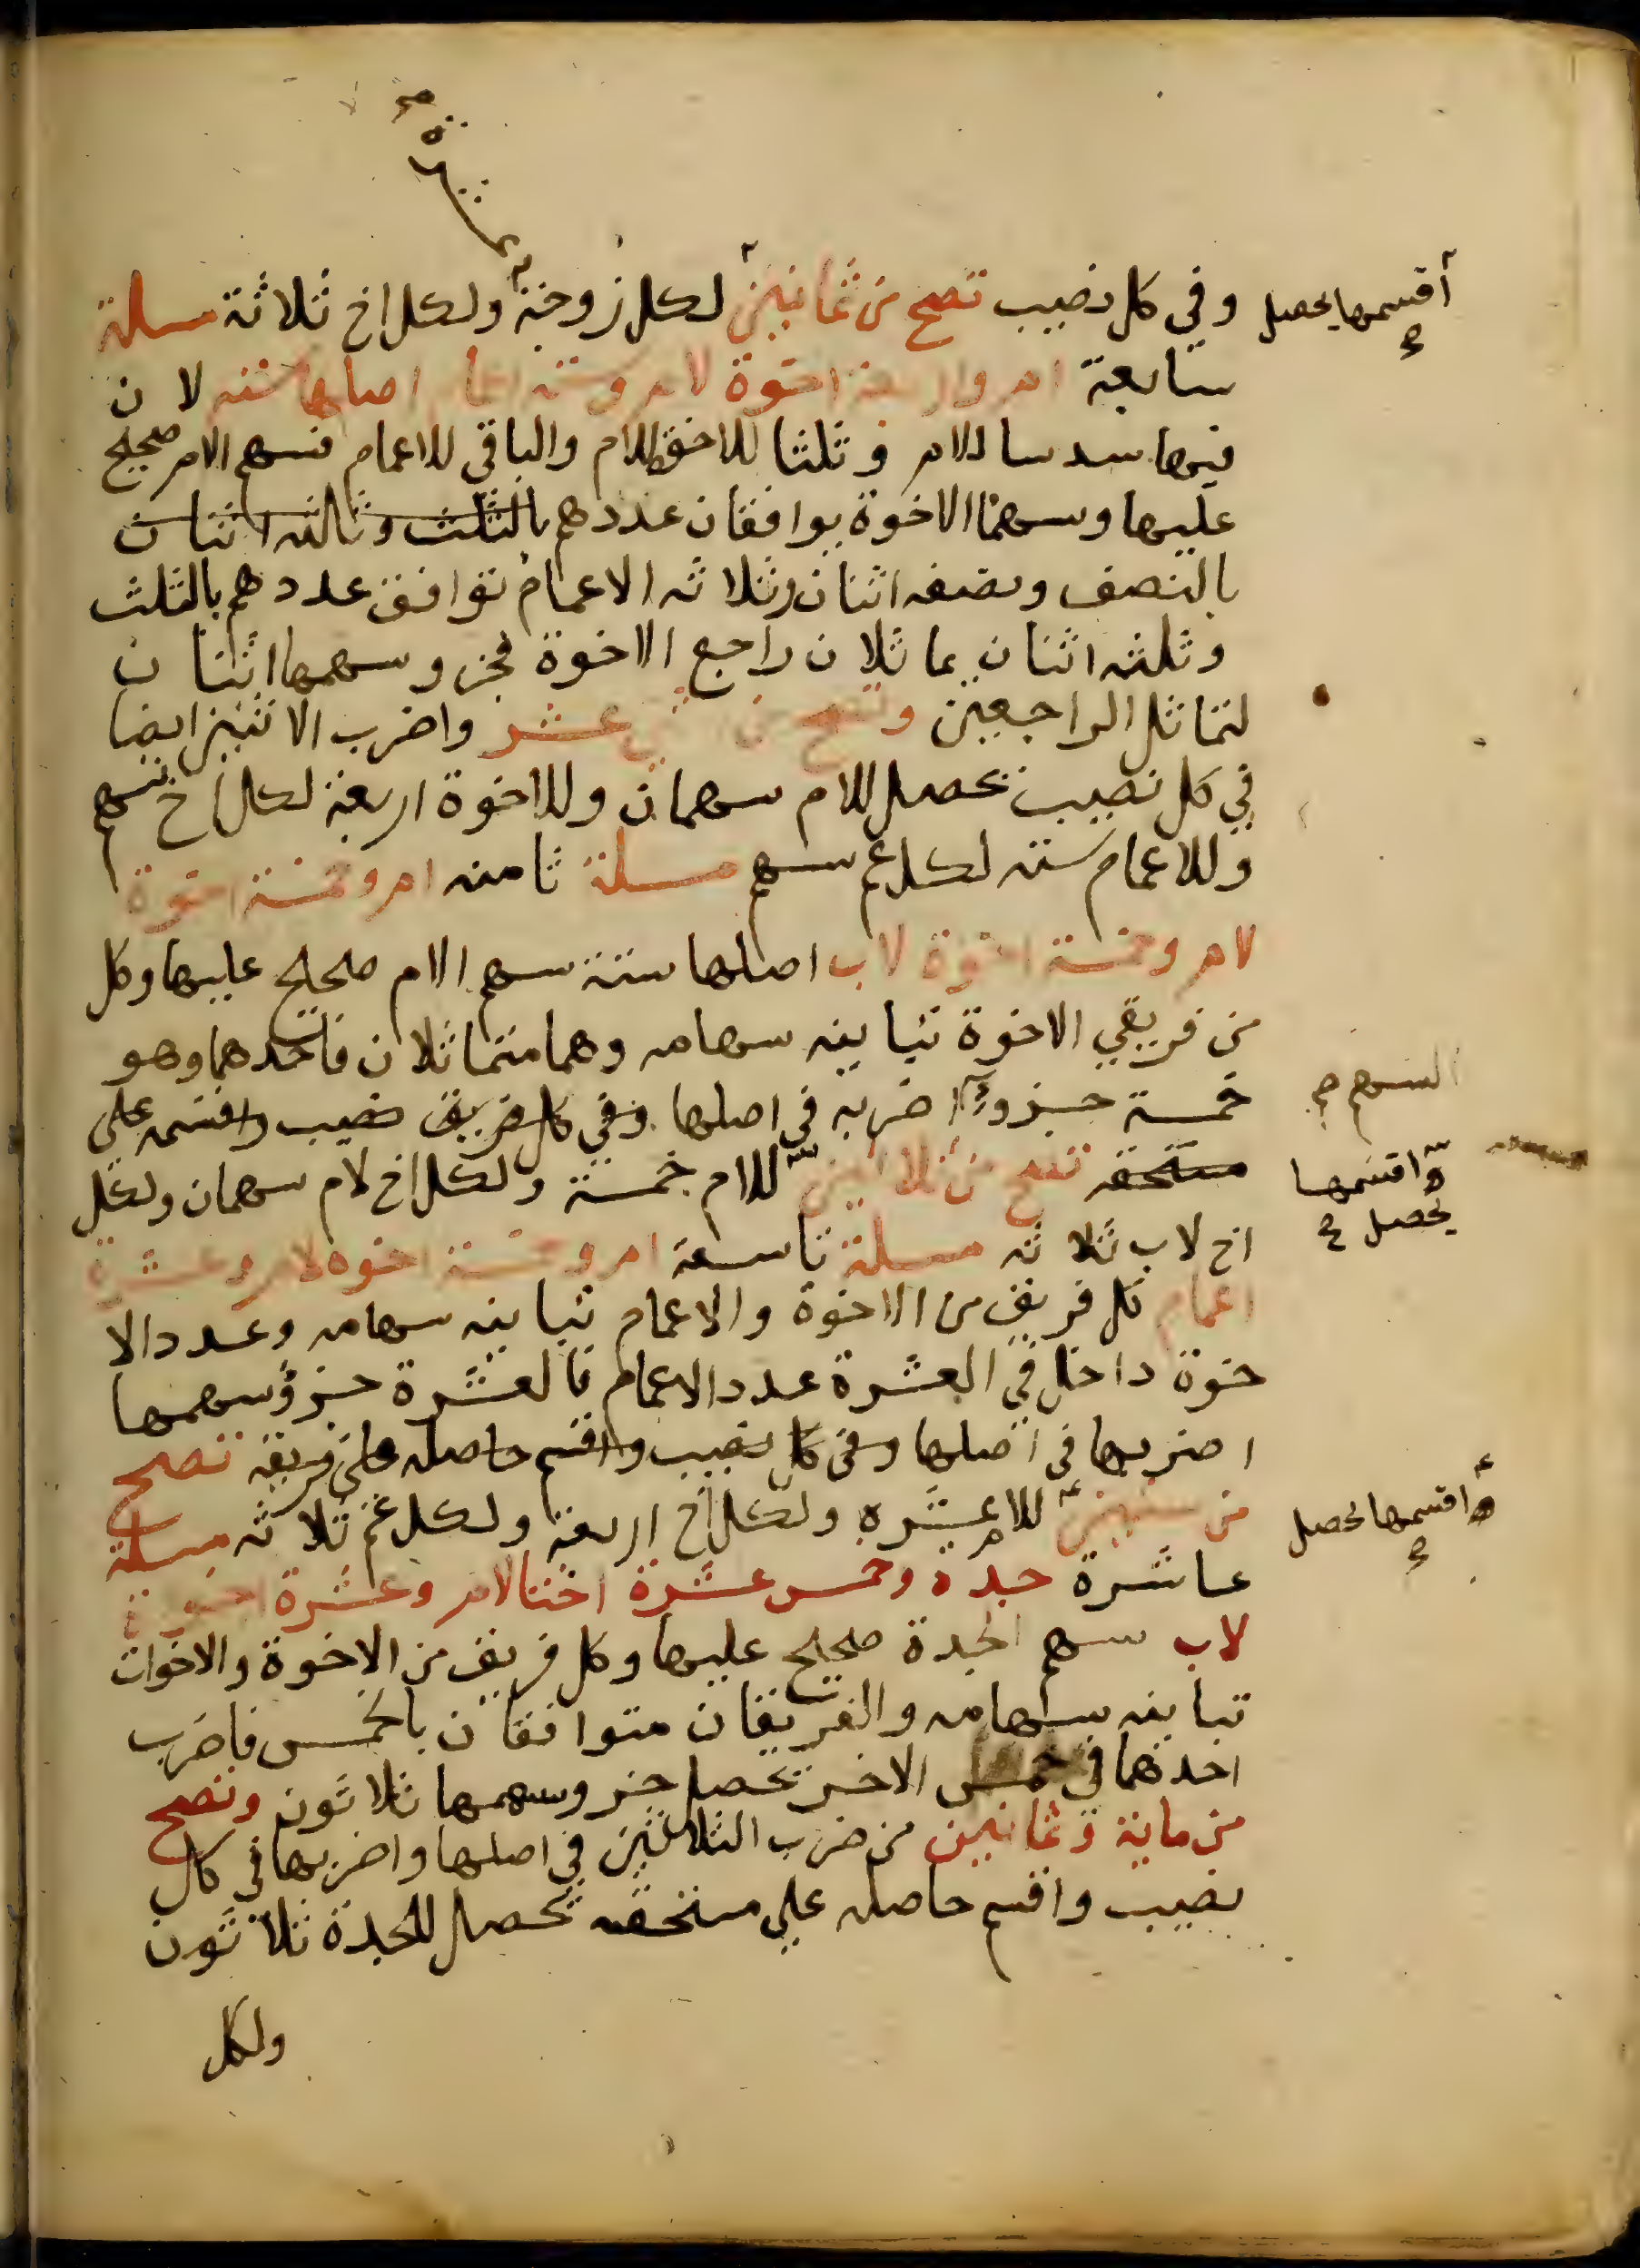 خمسة صح
وفي كل نصيب تصح من ثمانين لكل زوجة ولكل اخ ثلاثة مسلة
اقسمها يحصل صح
سابعة ام واربعة اخوة لام وستة اعمام اصلها ستة لان
فيها سدسا للام وثلثا للاخوة للام والباقي للاعمام فسهم الام صحيح
عليها وسهما الاخوة يوافقان عددهم بالثلث وثالثه اثنان
بالنصف ونصفه اثنان وثلاثه الاعمام توافق عددهم بالثلث
وثلثه اثنان يماثلان راجع الاخوة فجزو سهمها اثنان
لتماثل الراجعين وتصح من اثني عشر واضرب الاثنين ايضا
في كل نصيب يحصل للام سهمان وللاخوة اربعة لكل اخ سهم
وللاعمام سته لكل عم سهم مسلة ثامنه ام وخمسة اخوة
لام وخمسة اخوة لاب اصلها ستة سهم الام صحيح عليها وكل
من فريقي الاخوة تباينه سهامه وهما متماثلان فاحدهما وهو
خمسة جزو اضربه في اصلها وفي كل فريق نصيب واقسمه على
السهم صح
مستحقه تصح من ثلاثين للام خمسة ولكل اخ لام سهمان ولكل
واقسمها
يحصل صح
اخ لاب ثلاثه مسلة تاسعة ام وخمسة اخوه لام وعشرة
اعمام كل فريق من الاخوة والاعمام تباينه سهامه وعدد الا
خوة داخل في العشرة عدد الاعمام فالعشرة جزؤ سهمها
اضربها في اصلها وفي كل نصيب واقسم حاصله على فريقه تصح
من ستين للام عشره ولكل اخ اربعة ولكل عم ثلاثه مسلة
واقسمها يحصل صح
عاشرة جدة وخمس عشرة اختا لام وعشرة اخوة
لاب سهم الجدة صحيح عليها وكل فريق من الاخوة والاخوات
تباينه سهامه والفريقان متوافقان بالخمس فاضرب
احدهما في خمس الاخر يحصل جزو سهمها ثلاثون وتصح
من ماية وثمانين من ضرب الثلاثين في اصلها واضربها في كل
نصيب واقسم حاصله على مستحقه يحصل للجدة ثلاثون
ولكل